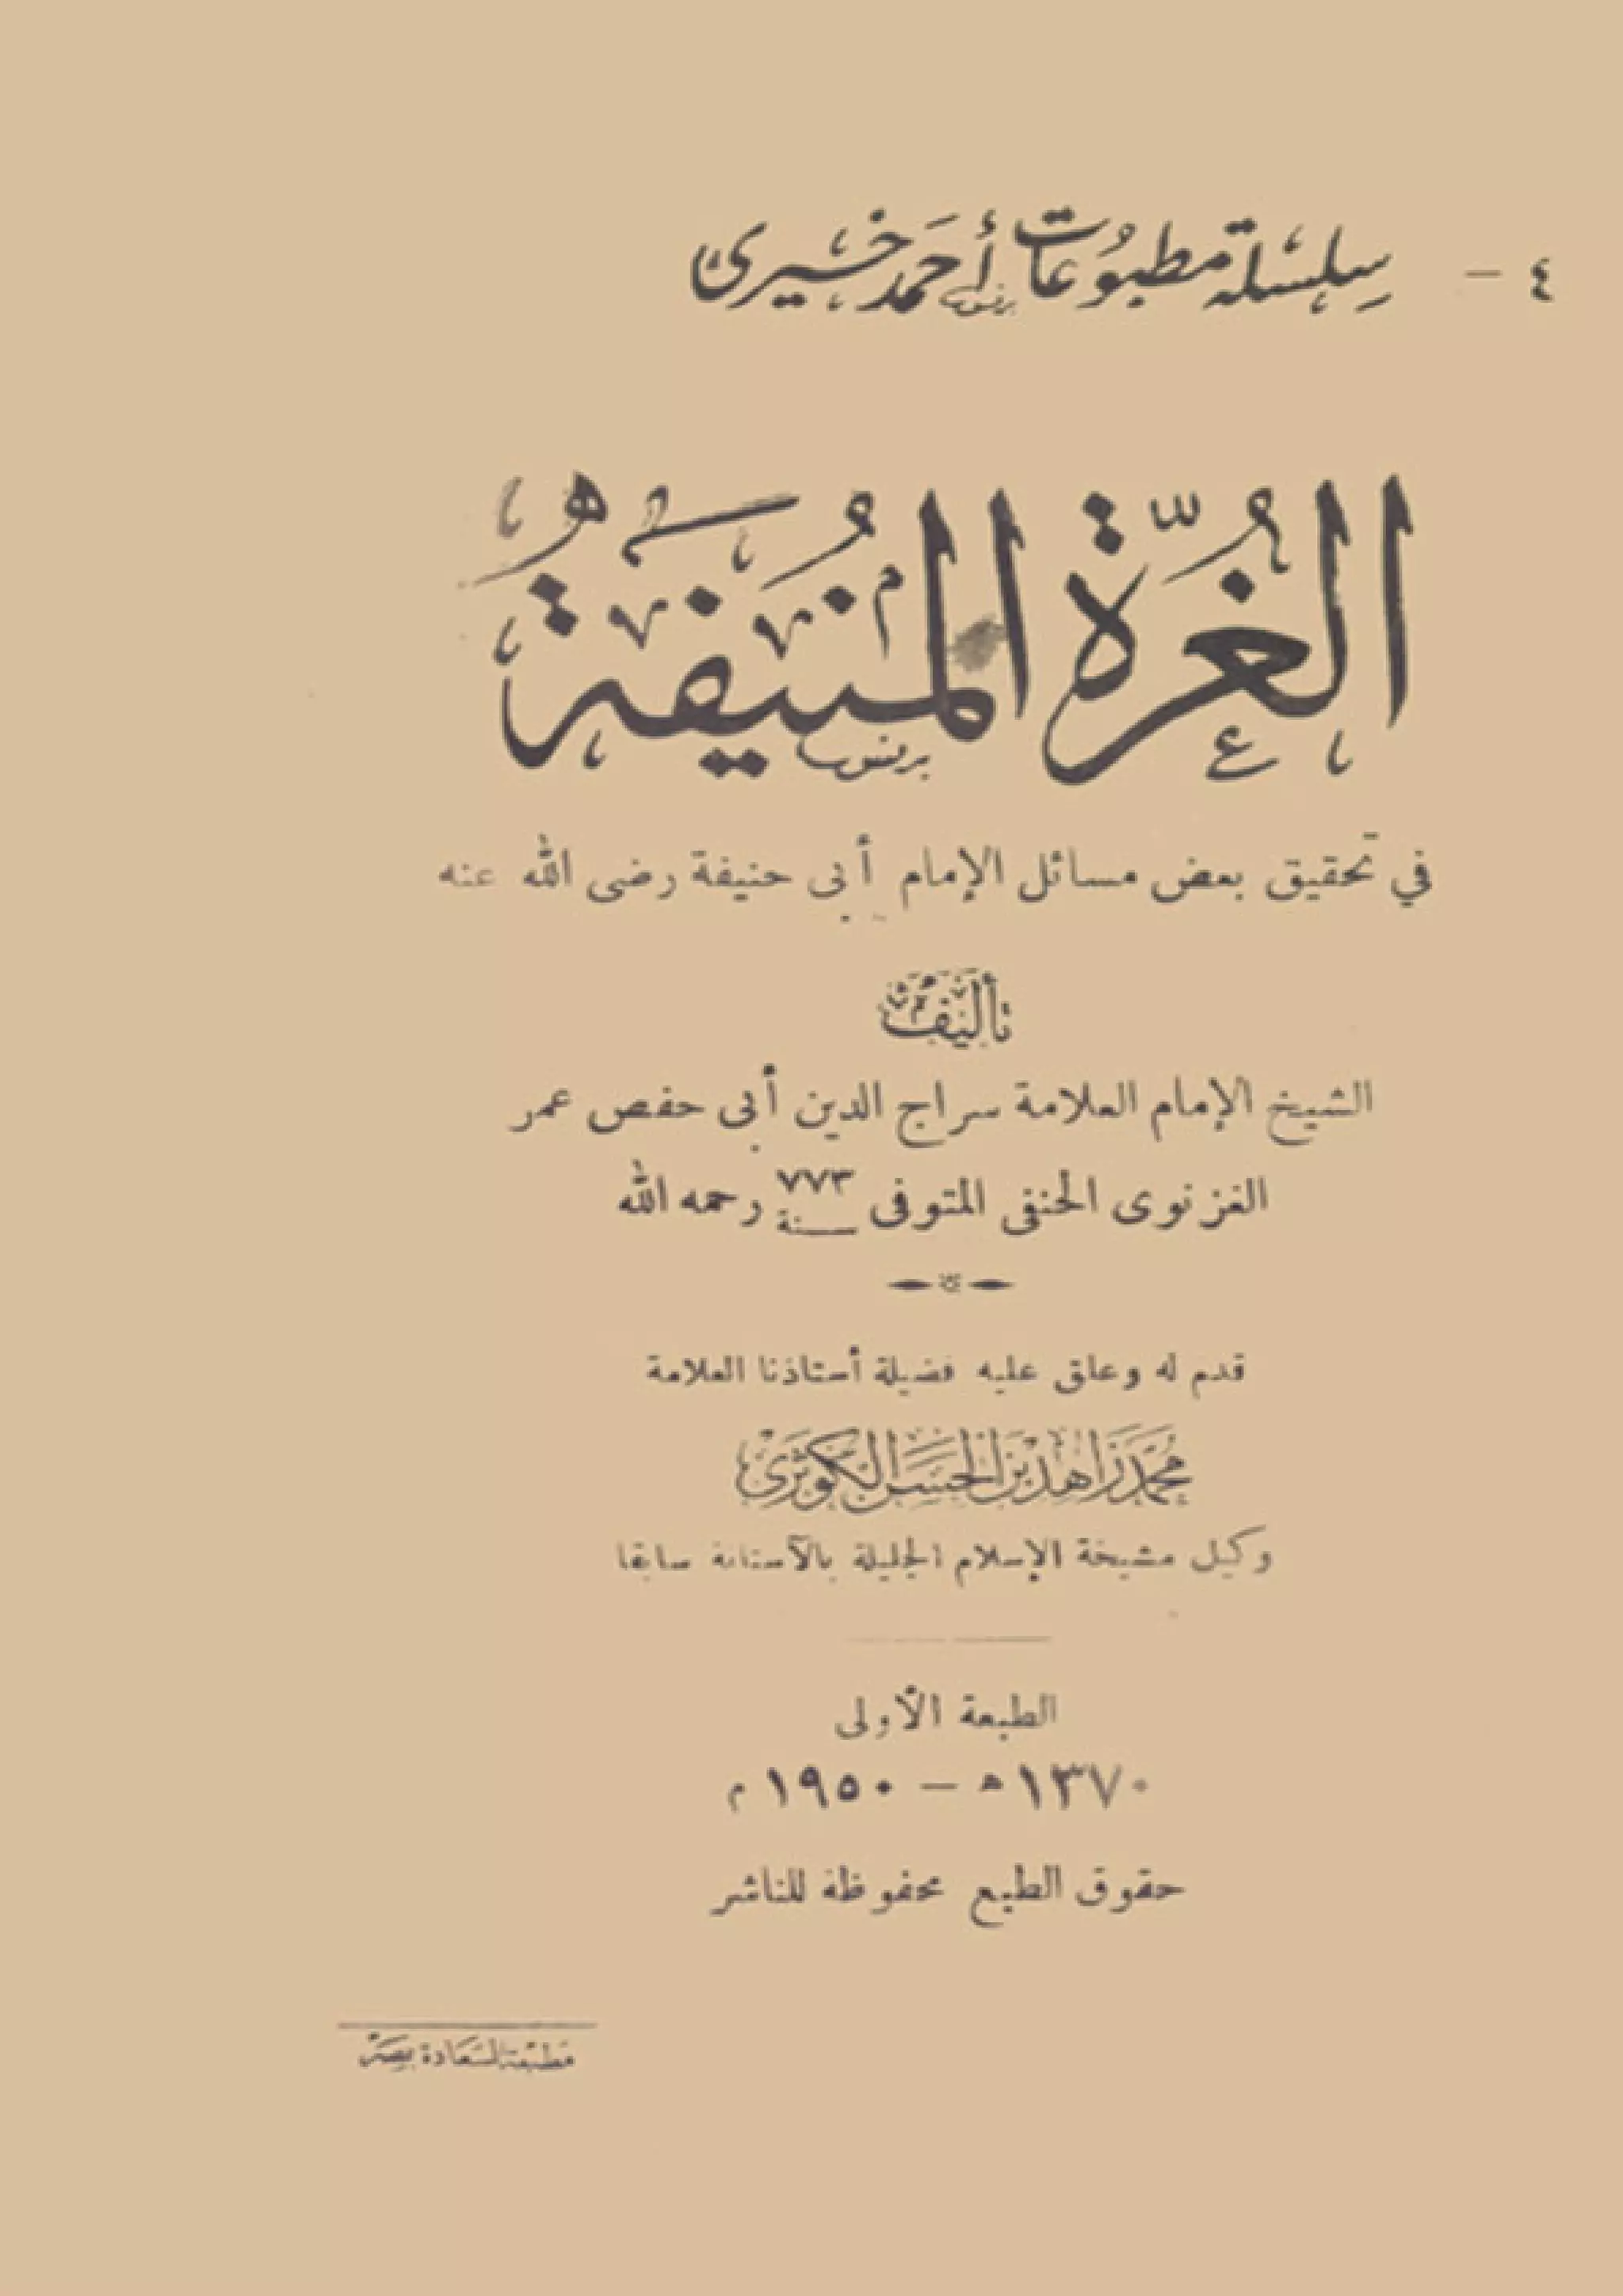 ٤ - سلسلة مطبوعات أحمد خيرى
الغُرّة المُنيفَة
في تحقيق بعض مسائل الإمام أبى حنيفة رضى الله عنه
تأليف
الشيخ الإمام العلامة سراج الدين أبى حفص عمر
الغزنوى الحنفى المتوفى سنة ٧٧٣ رحمه الله
قدم له وعلق عليه فضيلة أستاذنا العلامة
محمد زاهد بن الحسن الكوثرى
وكيل مشيخة الإسلام الجليلة بالآستانة سابقا
الطبعة الأولى
١٣٧٠ ه – ١٩٥٠ م
حقوق الطبع محفوظة للناشر
مطبعة السعادة بمصر